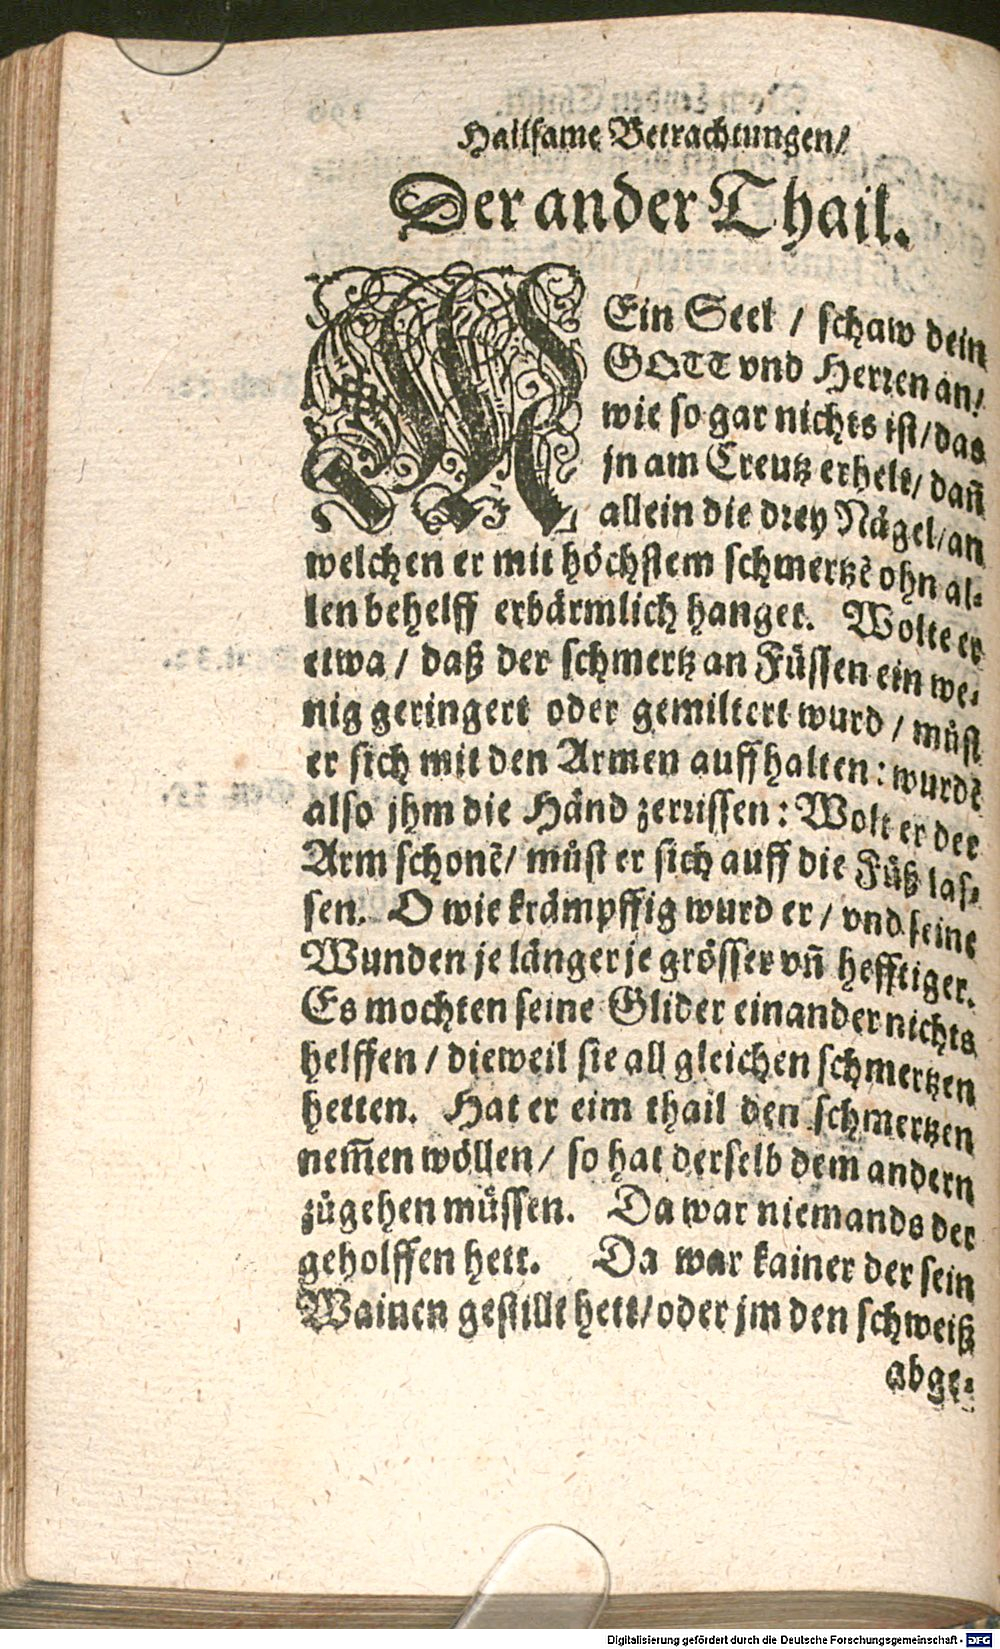 Hailsame Betrachtungen/
Der ander Thail.
MEin Seel / schaw dein
GOTT vnd Herren an!
wie so gar nichts ist/das
jn am Creutz erhelt/ dañ
allein die drey Nägel/an
welchen er mit höchstem schmertzẽ ohn al-
len behelff erbärmlich hanget. Wolte er
etwa / daß der schmertz an Füssen ein we-
nig geringert oder gemiltert wurd / můst
er sich mit den Armen auffhalten: wurdẽ
also jhm die Händ zerrissen: Wolt er der
Arm schonẽ/ můst er sich auff die Füß las-
sen. O wie krämpffig wurd er / vnd seine
Wunden je länger je grösser vñ hefftiger.
Es mochten seine Glider einander nichts
helffen / dieweil sie all gleichen schmertzen
hetten. Hat er eim thail den schmertzen
nem̃en wöllen/ so hat derselb dem andern
zůgehen müssen. Da war niemands der
geholffen hett. Da war kainer der sein
Wainen gestillt hett/oder jm den schweiß
abge-
Digitalisierung gefördert durch die Deutsche Forschungsgemeinschaft - DFG